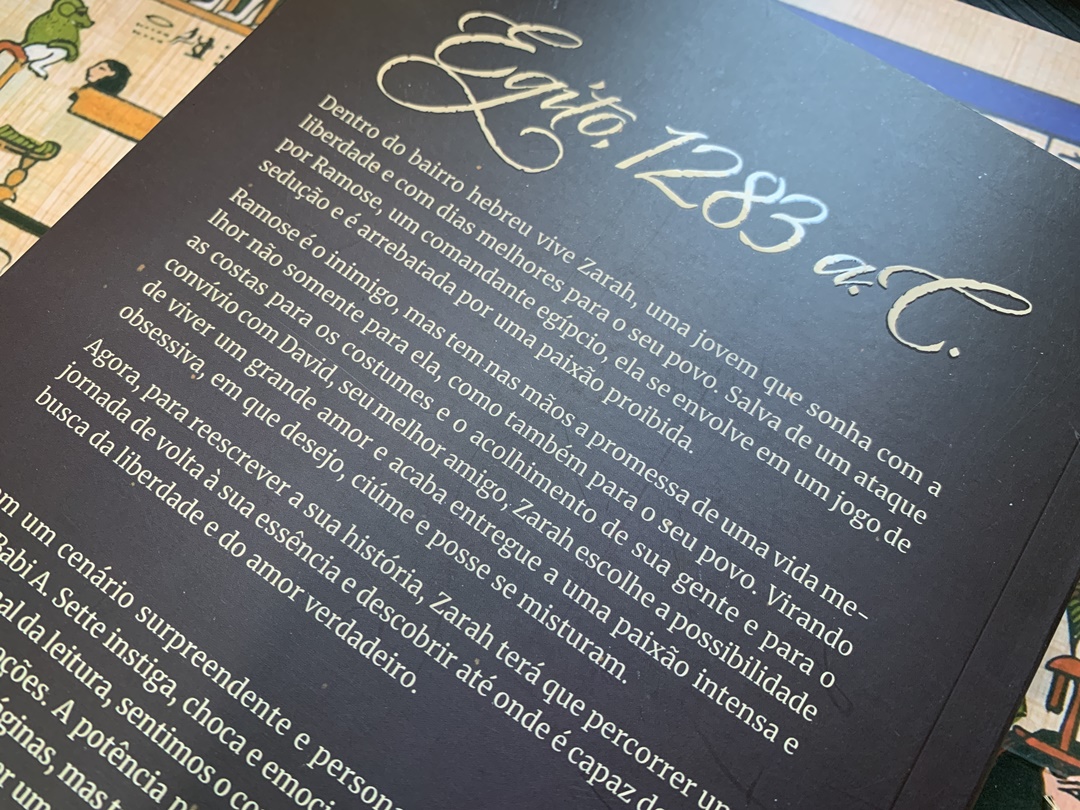 Egito, 1283 a.C.
Dentro do bairro hebreu vive Zarah, uma jovem que sonha com a
liberdade e com dias melhores para o seu povo. Salva de um ataque
por Ramose, um comandante egípcio, ela se envolve em um jogo de
sedução e é arrebatada por uma paixão proibida.
Ramose é o inimigo, mas tem nas mãos a promessa de uma vida me-
lhor não somente para ela, como também para o seu povo. Virando
as costas para os costumes e o acolhimento de sua gente e para o
convívio com David, seu melhor amigo, Zarah escolhe a possibilidade
de viver um grande amor e acaba entregue a uma paixão intensa e
obsessiva, em que desejo, ciúme e posse se misturam.
Agora, para reescrever a sua história, Zarah terá que percorrer
jornada de volta à sua essência e descobrir até onde é capaz
busca da liberdade e do amor verdadeiro.
um cenário surpreendente e
Babi A. Sette instiga, choca e
da leitura, sentimos o
A potência
mas
um